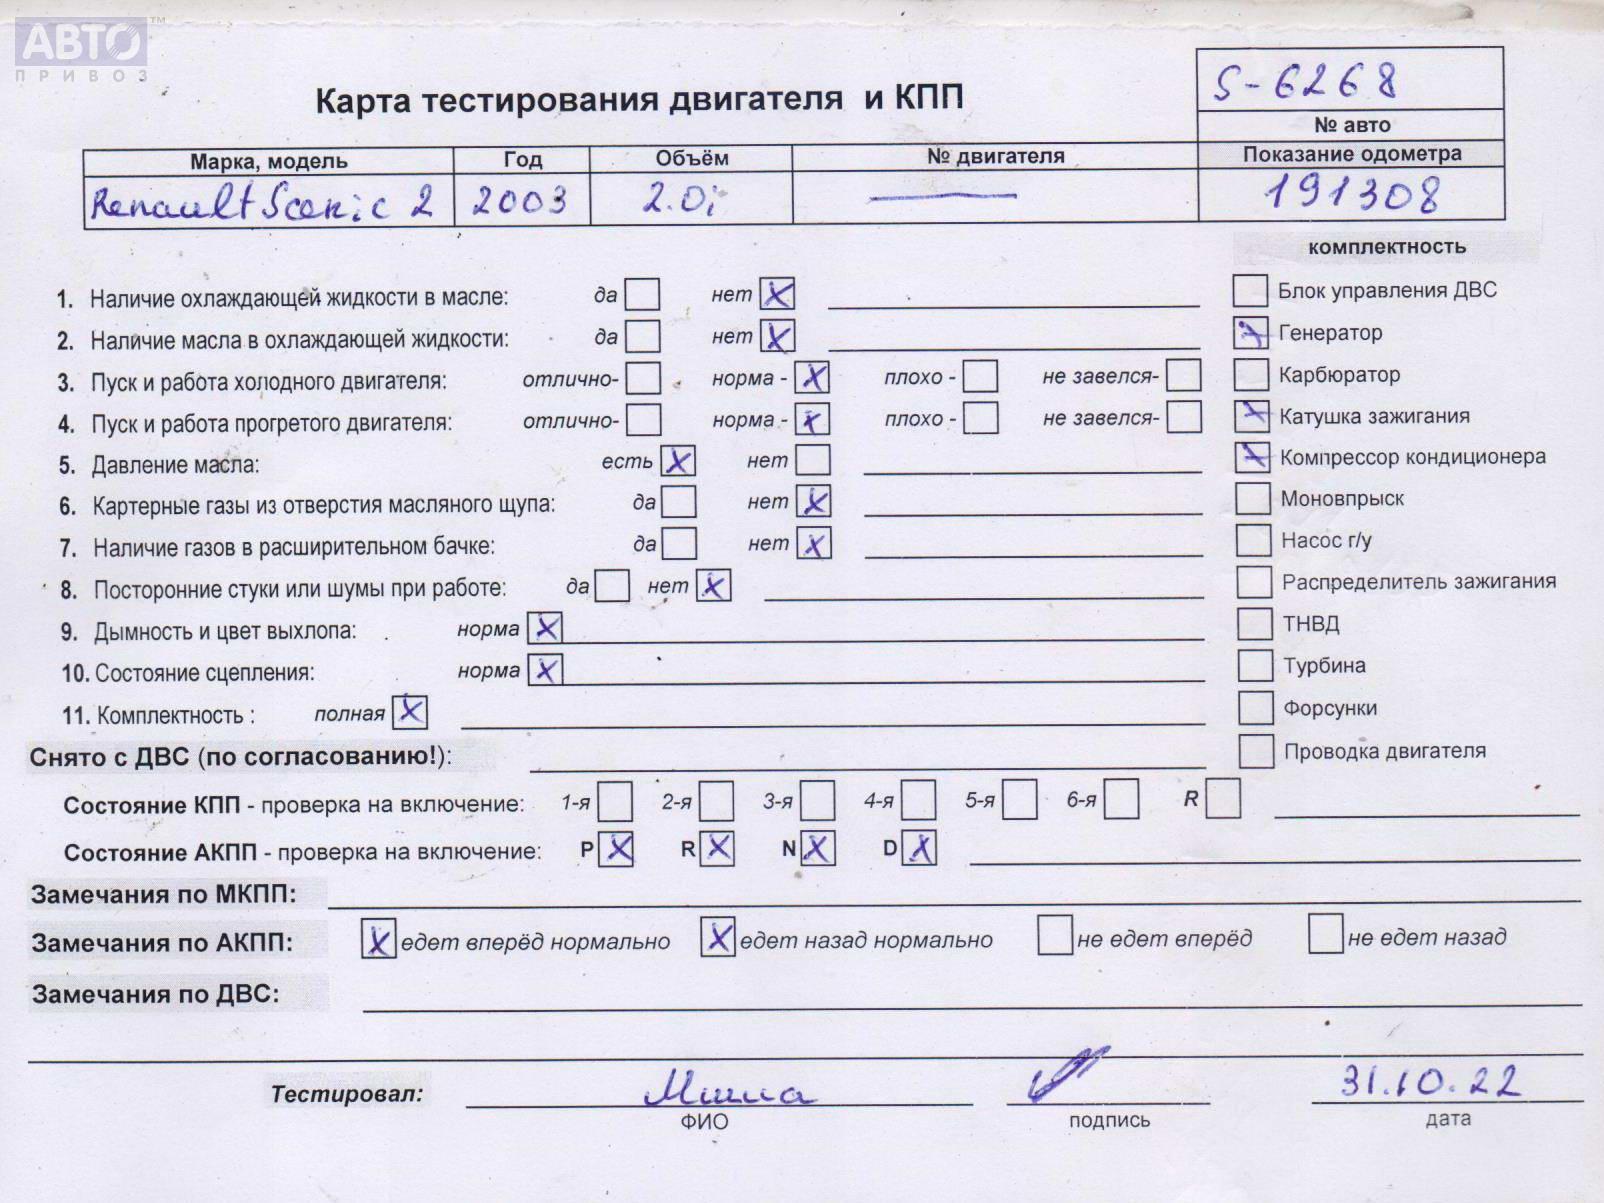 АВТО™
ПРИВОЗ
S-6268
Карта тестирования двигателя и КПП
№ авто
Марка, модель Год Объём № двигателя Показание одометра
Renault Scenic 2 2003 2.0i — 191308
комплектность
1. Наличие охлаждающей жидкости в масле: да нет X Блок управления ДВС
2. Наличие масла в охлаждающей жидкости: да нет X X Генератор
3. Пуск и работа холодного двигателя: отлично- норма - X плохо - не завелся- Карбюратор
4. Пуск и работа прогретого двигателя: отлично- норма - X плохо - не завелся- X Катушка зажигания
5. Давление масла: есть X нет X Компрессор кондиционера
6. Картерные газы из отверстия масляного щупа: да нет X Моновпрыск
7. Наличие газов в расширительном бачке: да нет X Насос г/у
8. Посторонние стуки или шумы при работе: да нет X Распределитель зажигания
9. Дымность и цвет выхлопа: норма X ТНВД
10. Состояние сцепления: норма X Турбина
11. Комплектность : полная X Форсунки
Снято с ДВС (по согласованию!): Проводка двигателя
Состояние КПП - проверка на включение: 1-я 2-я 3-я 4-я 5-я 6-я R
Состояние АКПП - проверка на включение: P X R X N X D X
Замечания по МКПП:
Замечания по АКПП: X едет вперёд нормально X едет назад нормально не едет вперёд не едет назад
Замечания по ДВС:
Тестировал: Миша 31.10.22
ФИО подпись дата